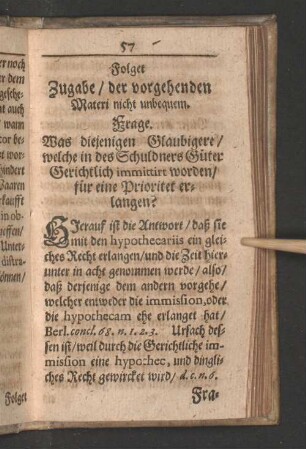 57
Folget
Zugabe / der vorgehenden
Materi nicht unbequem.
Frage.
Was diejenigen Glaubigere /
welche in des Schuldners Güter
Gerichtlich immittirt worden /
für eine Prioritet er-
langen?
HIerauf ist die Antwort / daß sie
mit den hypothecariis ein glei-
ches Recht erlangen / und die Zeit hier-
unter in acht genommen werde / also /
daß derjenige dem andern vorgehe /
welcher entweder die immission, oder
die hypothecam ehe erlanget hat /
Berl. concl. 68. n. 1. 2. 3. Ursach des-
sen ist / weil durch die Gerichtliche im-
mission eine hypothec, und dingli-
ches Recht gewircket wird / d. c. n. 6.
Fra-
Folget